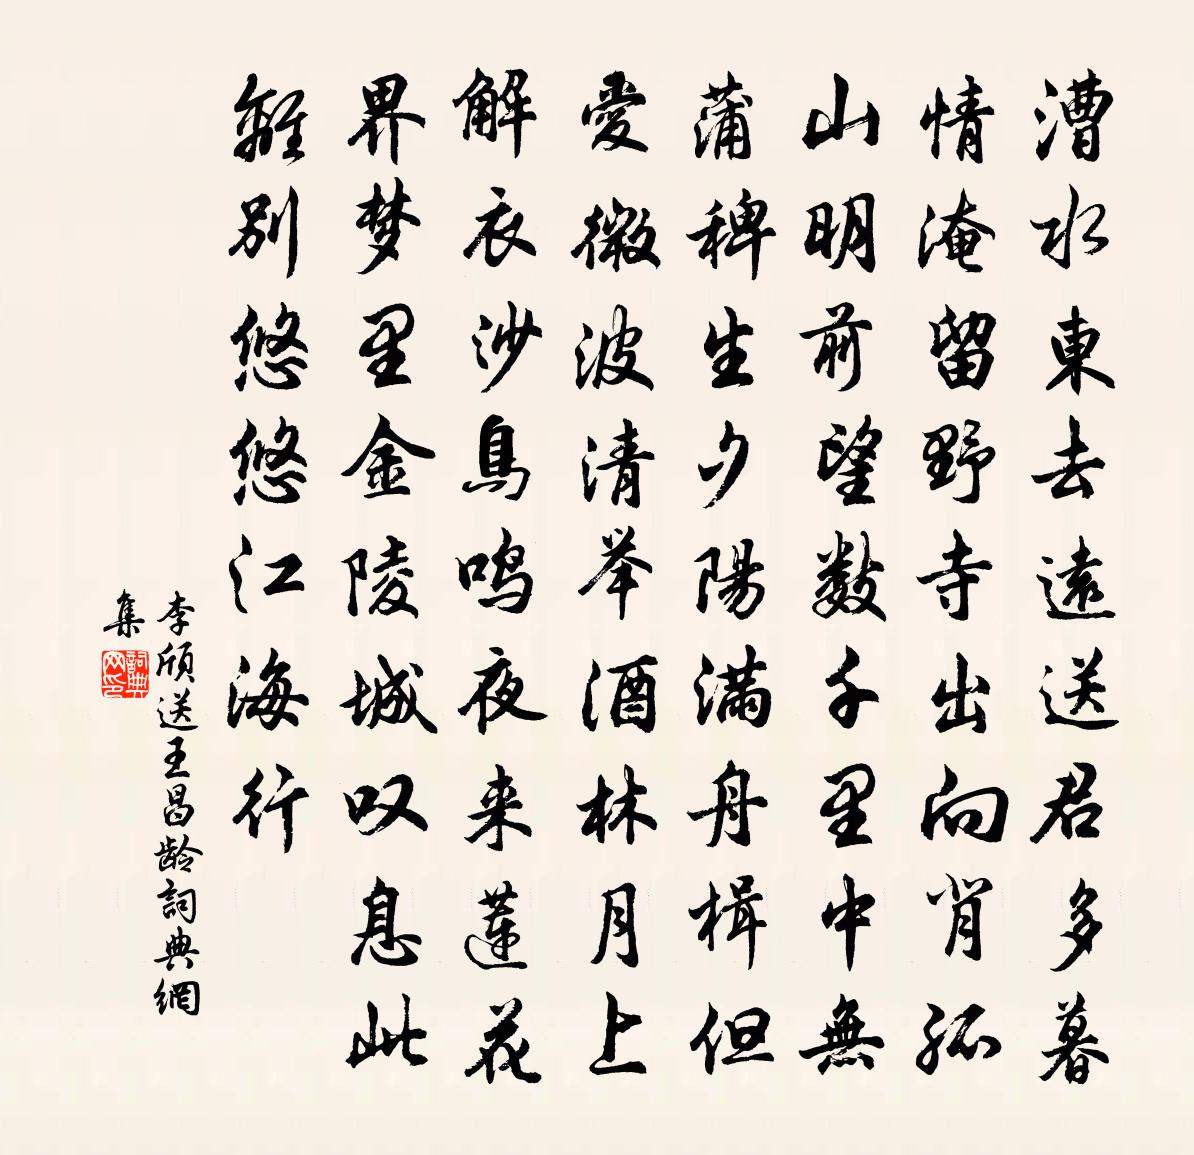 漕水東去遠送君多暮
情淹留野寺出向背孤
山明前望數千里中無
蒲稗生夕陽滿舟楫但
愛微波清举酒林月上
解衣沙鳥鸣夜来蓮花
界梦里金陵城叹息此
離別悠悠江海行
李頎送王昌龄詞典網
集
詞典
网印